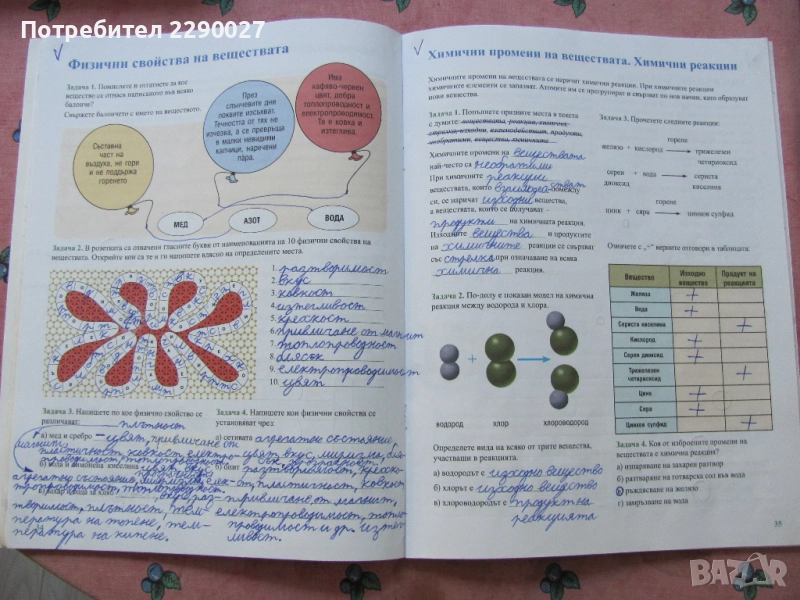 Потребител 2290027
Физични свойства на веществата
Задача 1. Помислете и отгатнете за кое
вещество се отнася написаното във всяко
балонче?
Свържете балончето с името на веществото.
Съставна
част на
въздуха, не гори
и не поддържа
горенето
През
слънчевите дни
локвите изсъхват.
Течността от тях не
изчезва, а се превръща
в малки невидими
капчици, наричени
пара.
Има
кафяво-червен
цвят, добра
топлопроводност и
електропроводимост.
Тя е ковка и
изтеглива.
МЕД
АЗОТ
ВОДА
Задача 2. В розетката са означени гласните букви от наименованията на 10 физични свойства на
веществата. Открийте кои са те и ги напишете вдясно на определените места.
1. разтворимост
2. вкус
3. ковкост
4. изтегливост
5. крехкост
6. привличане от магнит
7. топлопроводност
8. блясък
9. електропроводимост
10. цвят
Задача 3. Напишете по кое физично свойство се
различават: плътност
а) мед и сребро – цвят, привличане от
магнит, пластичност, ковкост, електро-
Задача 4. Напишете кои физични свойства се
установяват чрез:
а) сетивата агрегатно състояние,
цвят, вкус, миризма,
разтворимост,
ел-т, пластичност, ковкост
привличане от магнит,
електропроводимост,
творимост, плътност, тем-
пература на топене, тем-
пература на кипене.
проводимост и др. изтег-
ливост.
Химични промени на веществата. Химични реакции
Химичните промени на веществата се наричат химични реакции. При химичните
химичните елементи се запазват. Атомите им се прегрупират и свързват по нов начин, като образуват
нови вещества.
Задача 1. Попълнете празните места в текста
с думите: веществата, реакции, химична,
стрелка, изходни, взаимодействат, продукти,
необратими, вещества, химичните
Химичните промени на веществата
най-често са необратими
При химичните реакции
веществата, които взаимодействат помежду
си, се наричат изходни вещества,
а веществата, които се получават –
продукти на химичната реакция.
Изходните вещества и продуктите
на химичните реакции се свързват
със стрелка при означаване на всяка
химична реакция.
Задача 2. По-долу е показан модел на химична
реакция между водорода и хлора.
водород
хлор
хлороводород
Определете вида на всяко от трите вещества,
участващи в реакцията.
а) водородът е изходно вещество
б) хлорът е изходно вещество
в) хлороводородът е продукт на
реакцията
Задача 3. Прочетете следните реакции:
горене
желязо + кислород
трижелезен
четириоксид
серен + вода
диоксид
сериста
киселина
горене
цинк + сяра
цинков сулфид
Означете с „+“ верните отговори в таблицата:
Вещество Изходно вещество Продукт на реакцията
Желязо +
Вода +
Сериста киселина +
Кислород +
Серен диоксид +
Трижелезен четириоксид +
Цинк +
Сяра +
Цинков сулфид +
Задача 4. Коя от изброените промени на
веществата е химична реакция?
а) изпаряване на захарен разтвор
б) разтваряне на готварска сол във вода
в) ръждясване на желязо
г) замръзване на вода
35
BAZAR